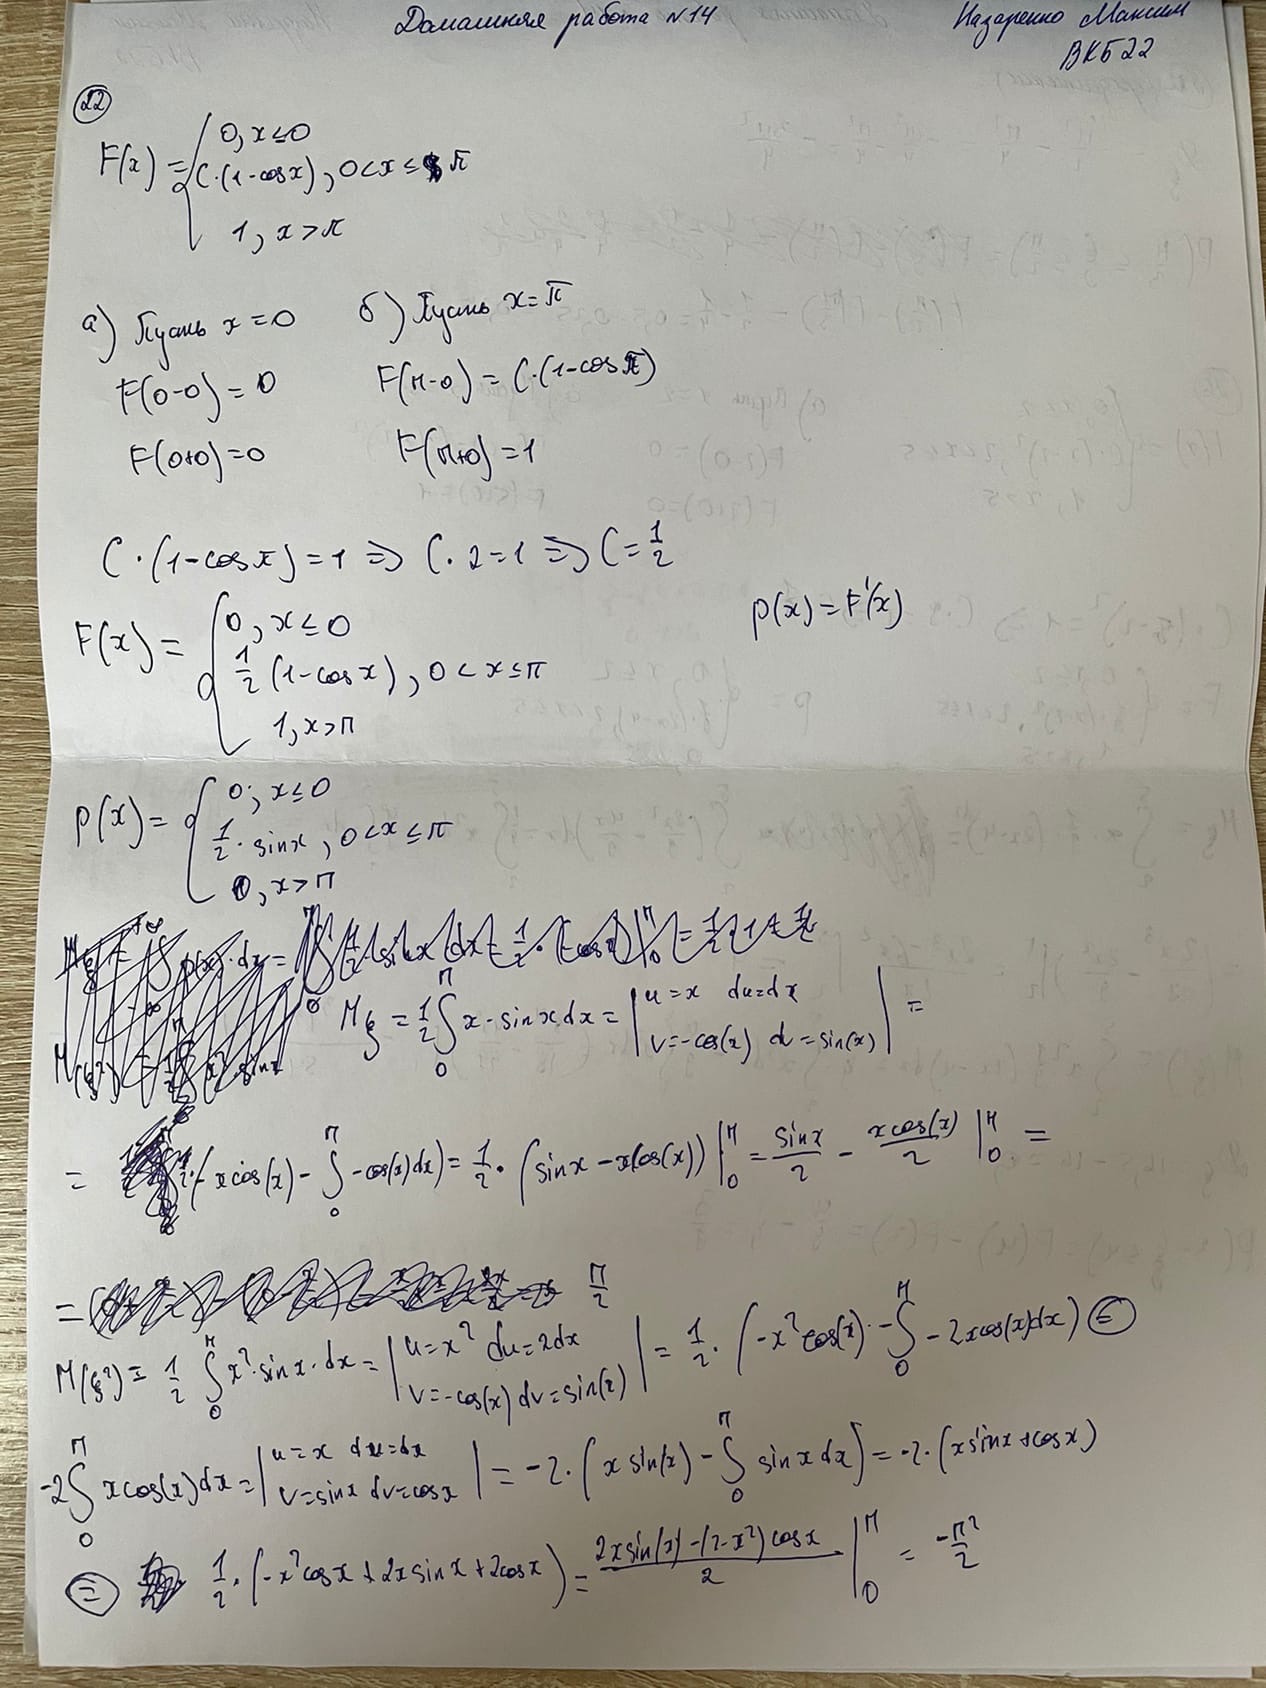 Домашняя работа №14
Назаренко Максим
ВКБ22
22
F(x) = { 0, x≤0
C·(1-cosx), 0<x≤ π
1, x>π
а) Пусть x=0 б) Пусть x=π
F(0-0)=0 F(π-0)=C·(1-cosπ)
F(0+0)=0 F(π+0)=1
C·(1-cosπ)=1 ⇒ C·2=1 ⇒ C=1/2
F(x) = { 0, x≤0 p(x)=F'(x)
1/2 (1-cosx), 0<x≤π
1, x>π
p(x) = { 0, x≤0
1/2·sinx, 0<x≤π
0, x>π
Mξ = 1/2 ∫₀^π x·sinxdx = | u=x du=dx
v=-cos(x) dv=sin(x) | =
= 1/2·(-xcos(x) - ∫₀^π -cos(x)dx) = 1/2·(sinx-xcos(x)) |₀^π = sinx/2 - xcos(x)/2 |₀^π =
= π/2
M(ξ²) = 1/2 ∫₀^π x²·sinx·dx = | u=x² du=2dx
v=-cos(x) dv=sin(x) | = 1/2·(-x²cos(x) - ∫₀^π -2xcos(x)dx) ⊜
-2∫₀^π xcos(x)dx = | u=x du=dx
v=sinx dv=cosx | = -2·(xsin(x) - ∫₀^π sinxdx) = -2·(xsinx+cosx)
⊜ 1/2·(-x²cosx+2xsinx+2cosx) = (2xsin(x)-(2-x²)cosx)/2 |₀^π = -π²/2